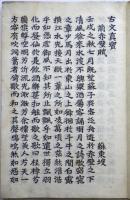 古文真寶
前赤壁賦　蘇東坡
壬戌之秋七月既望蘇子與客泛舟遊於赤壁之下
清風徐來水波不興舉酒屬客誦明月之詩歌窈窕
之章少焉月出於東山之上徘徊於斗牛之間白露
橫江水光接天縱一葦之所如凌萬頃之茫然浩浩
乎如馮虛御風而不知其所止飄飄乎如遺世獨立羽
化而登仙於是飲酒樂甚扣舷而歌之歌曰桂棹兮
蘭槳擊空明兮泝流光渺渺兮余懷望美人兮天一
方客有吹洞簫者倚歌而和之其聲嗚嗚然如怨